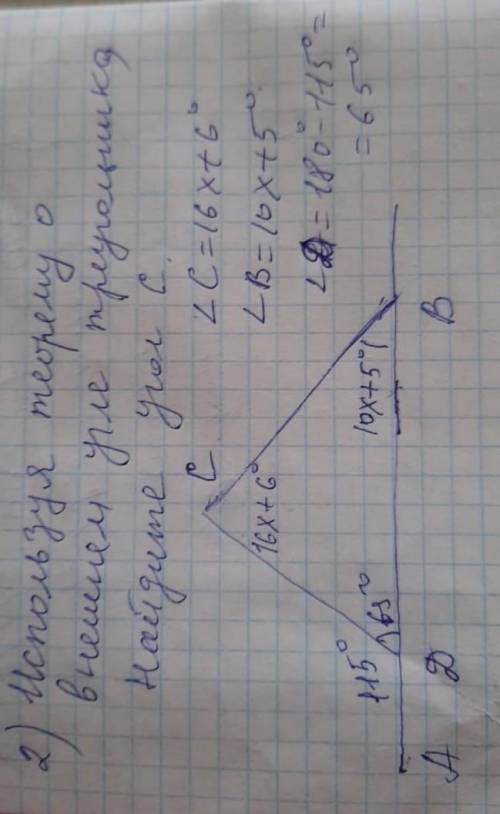 2) Используя теорему о
внешнем угле треугольника
Найдите угол С.
∠C = 16x + 6°
∠B = 10x + 5°
∠Д = 180° - 115° =
= 65°
C
16x + 6°
115°
65°
10x + 5°
А
Д
В